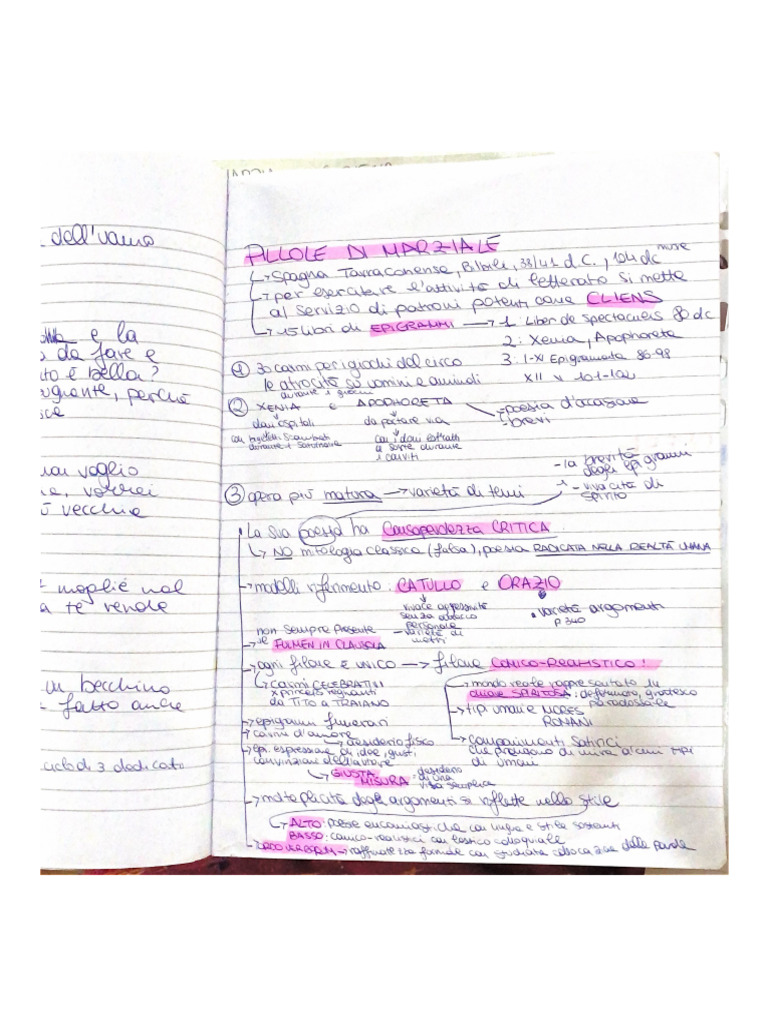 dell'uomo
e la
da fare e
è bella?
perché
voglio
vorrei
vecchia
moglie nel
a te rende
un becchino
fatto anche
ciclo di 3 dedicato
PILLOLE DI MARZIALE
↳ Spagna Tarraconense, Bilbili, 38/41 d.C., 104 dc muore
↳ per esercitare l'attività di letterato si mette
al servizio di patroni potenti come CLIENS
↳ 15 libri di EPIGRAMMI → 1: Liber de spectaculis 80 dc
2: Xenia, Apophoreta
3: I-XI Epigrammata 86-98
XII " 101-102
① 30 carmi per i giochi del circo
le atrocità su uomini e animali
durante i giochi
② XENIA e APOPHORETA
- poesia d'occasione
- brevi
doni ospitali
da portare via
con biglietti scambiati
durante i Saturnali
con i doni estratti
a sorte durante
i conviti
- la brevità
degli epigrammi
- vivacità di
spirito
③ opera più matura → varietà di temi
La sua poesia ha Consapevolezza CRITICA
↳ NO mitologia classica (falsa), poesia RADICATA NELLA REALTÀ UMANA
→ modelli riferimento: CATULLO e ORAZIO
vivace aggressività
senza attacco
personale
- varietà di
metri
• varietà argomenti
p 340
non sempre presente
il FULMEN IN CLAUSULA
→ ogni filone è unico → filone COMICO-REALISTICO!
↳ CARMI CELEBRATIVI
x princeps regnanti
da TITO a TRAIANO
→ mondo reale rappresentato in
chiave SPIRITOSA: deformato, grottesco
paradossale
→ tipi umani e MORES
ROMANI
→ componimenti satirici
che prendono di mira alcuni TIPI
di umani
→ epigrammi funerari
→ carmi d'amore
→ desiderio fisico
→ epi. espressione di idee, gusti,
convinzioni dell'autore
↳ GIUSTA MISURA = desiderio
di una
vita semplice
→ molteplicità degli argomenti si riflette nello stile
→ ALTO: poesie encomiastiche con lingua e stile sostenuti
BASSO: comico-realistici con lessico colloquiale
→ ORDO VERBORUM → raffinatezza formale con studiata collocazione delle parole